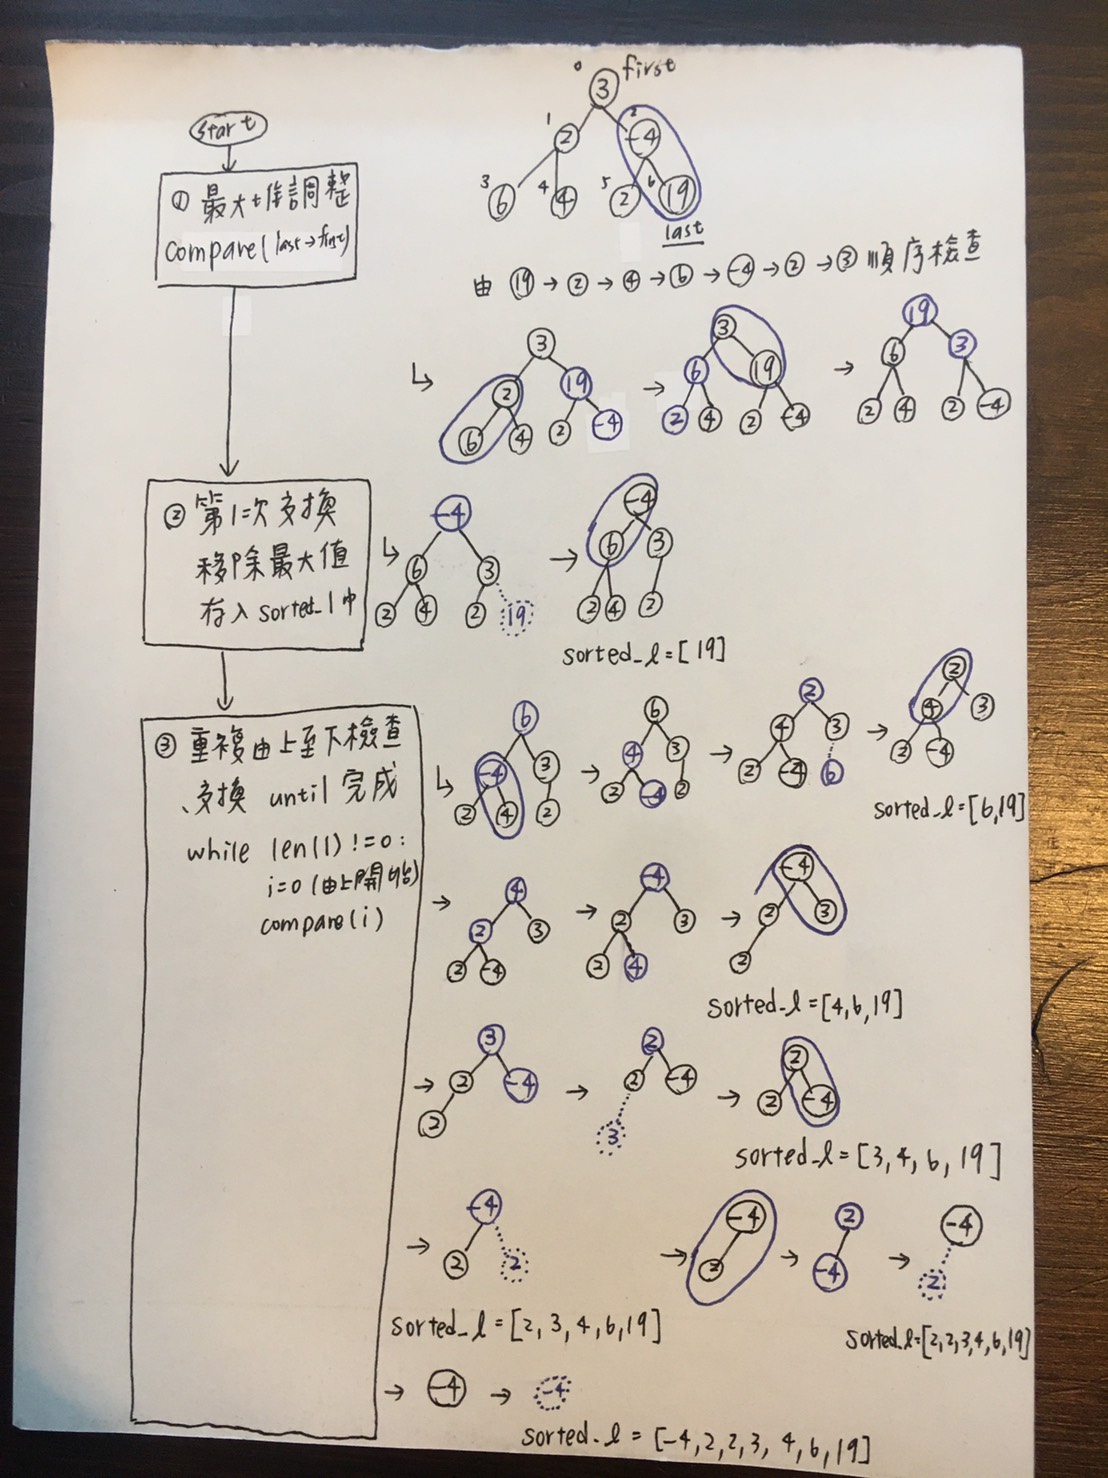 start
① 最大堆調整
compare(last→first)
0 3 first
1 2 2 -4
3 6 4 4 5 2 6 19
last
由 19→2→4→6→-4→2→3 順序檢查
↳ 3 → 3 → 19
2 19 6 19 6 3
6 4 2 -4 2 4 2 -4 2 4 2 -4
② 第1次交換
移除最大值
存入 sorted_l中
↳ -4 → -4
6 3 6 3
2 4 2 19 2 4 2
sorted_l=[19]
③ 重複由上至下檢查
、交換 until 完成
while len(l) !=0:
i=0 (由上開始)
compare(i)
↳ 6 → 6 → 2 → 2
-4 3 4 3 4 3 4 3
2 4 2 2 -4 2 2 -4 6 2 -4
sorted_l=[6,19]
→ 4 → -4 → -4
2 3 2 3 2 3
2 -4 2 4 2
sorted_l=[4,6,19]
→ 3 → 2 → 2
2 -4 2 -4 2 -4
2 3
sorted_l=[3,4,6,19]
→ -4 → -4 → 2 → -4
2 2 2 -4 2
sorted_l=[2,3,4,6,19]
sorted_l=[2,2,3,4,6,19]
→ -4 → -4
sorted_l = [-4,2,2,3,4,6,19]